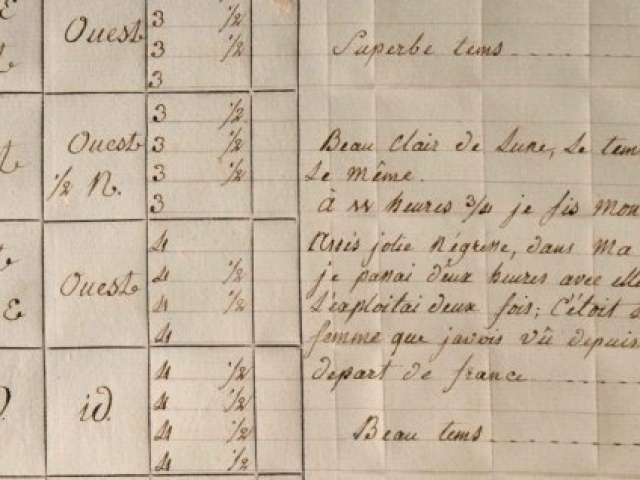 E
Ouest
3 1/2
3 1/2
3
Superbe tems
Ouest
1/2 N.
3 1/2
3 1/2
3 1/2
3
Beau Clair de Lune, Le tem
Le même.
à 11 heures 3/4 je fis mon
E
Ouest
4
4 1/2
4 1/2
4
assés jolie négresse, dans ma
je passai deux heures avec elle
L'exploitai deux fois; C'étoit
femme que javois vû depuis
depart de france
id.
4 1/2
4 1/2
4 1/2
4 1/2
Beau tems